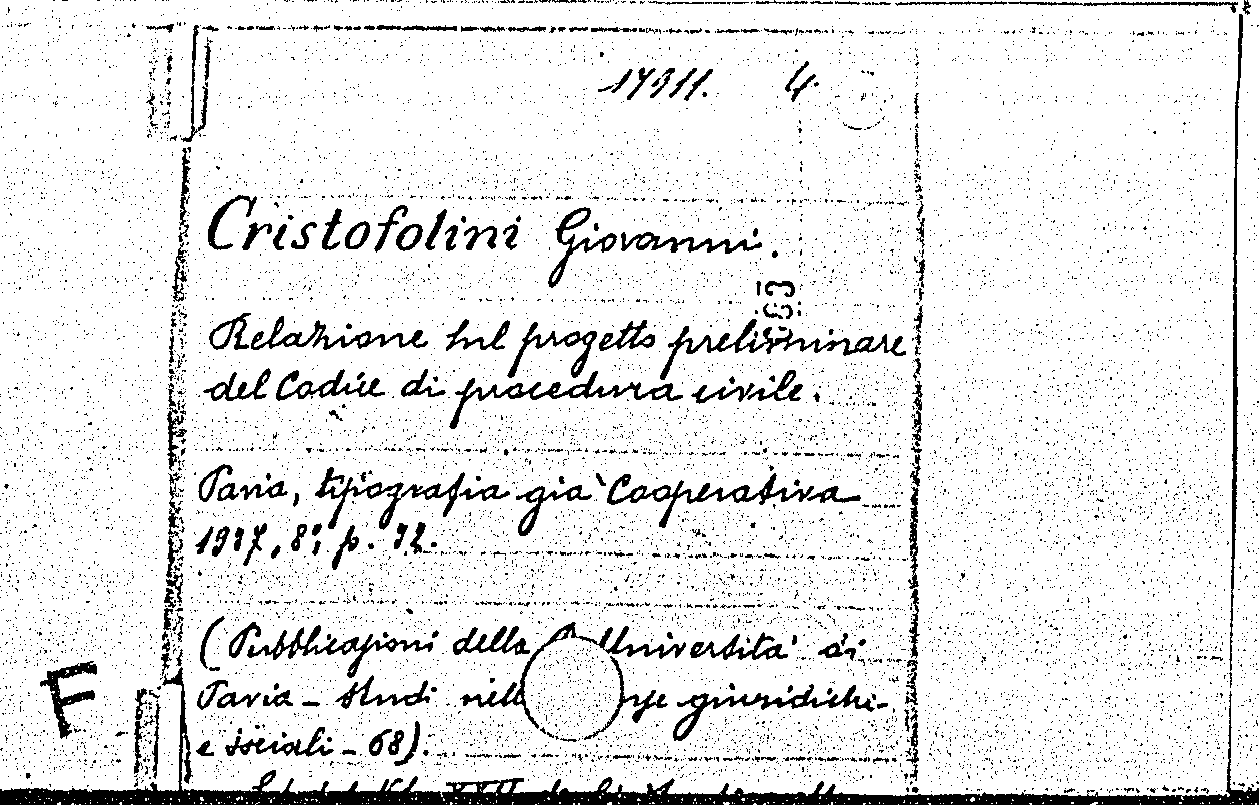 17911. 4.
Cristofolini Giovanni.
Relazione sul progetto preliminare
del Codice di procedura civile.
Pavia, tipografia già Cooperativa
1937, 8°, p. 92.
(Pubblicazioni della Università di
Pavia - Studi nelle giuridiche
e sociali - 68).
F